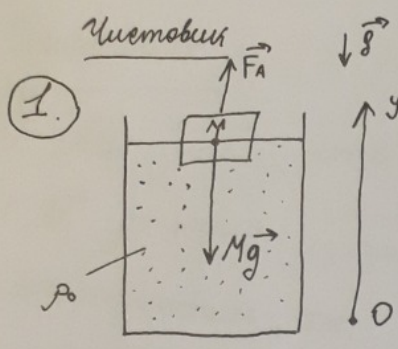 Чистовик
1.
F_A
g
y
M
Mg
ρ₀
O